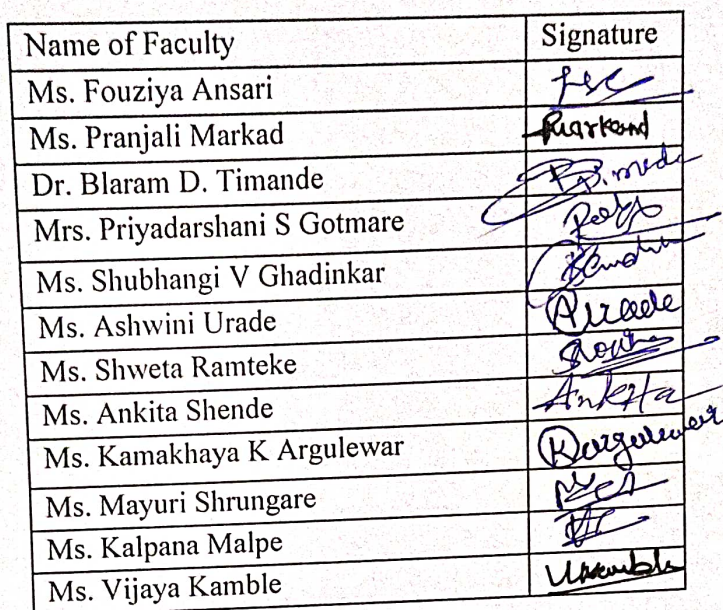 Name of Faculty Signature
Ms. Fouziya Ansari
Ms. Pranjali Markad
Dr. Blaram D. Timande
Mrs. Priyadarshani S Gotmare
Ms. Shubhangi V Ghadinkar
Ms. Ashwini Urade
Ms. Shweta Ramteke
Ms. Ankita Shende Ankita
Ms. Kamakhaya K Argulewar
Ms. Mayuri Shrungare
Ms. Kalpana Malpe
Ms. Vijaya Kamble